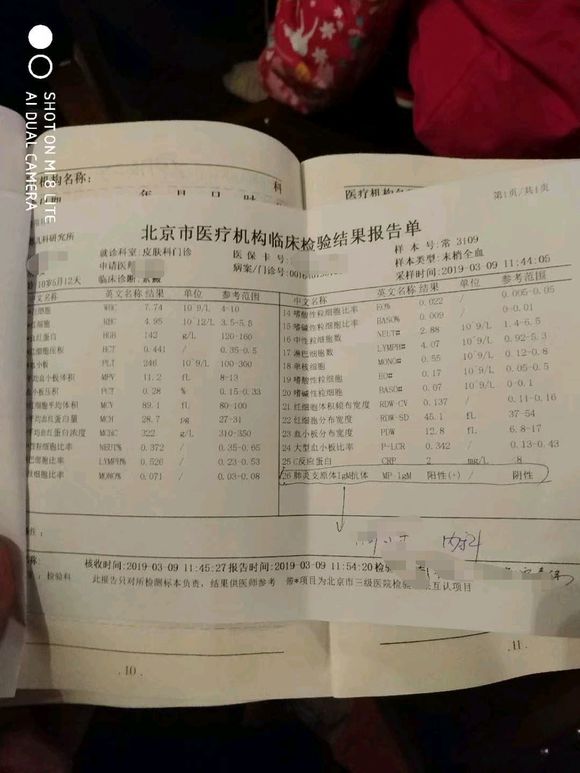 SHOT ON MI 8 LITE
AI DUAL CAMERA
机构名称:
科
医疗机构名称:
第1页/共1页
北京市医疗机构临床检验结果报告单
儿科研究所
就诊科室:皮肤科门诊
医 保 卡 号:
样 本 号:常 3109
申请医
病案/门诊号:
样本类型:末梢全血
10岁5月12天
临床诊断:
采样时间:2019-03-09 11:44:05
中文名称 英文名称 结果 单位 参考范围
WBC 7.74 10^9/L 4-10
RBC 4.95 10^12/L 3.5-5.5
血红蛋白 HGB 142 g/L 120-160
红细胞压积 HCT 0.441 / 0.35-0.5
血小板 PLT 246 10^9/L 100-300
平均血小板体积 MPV 11.2 fL 8-13
血小板压积 PCT 0.28 % 0.15-0.33
红细胞平均体积 MCV 89.1 fL 80-100
平均血红蛋白量 MCH 28.7 pg 27-31
平均血红蛋白浓度 MCHC 322 g/L 310-350
中性粒细胞比率 NEUT% 0.372 / 0.35-0.65
淋巴细胞比率 LYMPH% 0.526 / 0.23-0.53
单核细胞比率 MONO% 0.071 / 0.03-0.08
中文名称 英文名称 结果 单位 参考范围
14 嗜酸性粒细胞比率 EO% 0.022 / 0.005-0.05
15 嗜碱性粒细胞比率 BASO% 0.009 / 0-0.01
16 中性粒细胞数 NEUT# 2.88 10^9/L 1.4-6.5
17 淋巴细胞数 LYMPH# 4.07 10^9/L 0.92-5.3
18 单核细胞 MONO# 0.55 10^9/L 0.12-0.8
19 嗜酸性粒细胞 EO# 0.17 10^9/L 0.05-0.5
20 嗜碱性粒细胞 BASO# 0.07 10^9/L 0-0.1
21 红细胞体积频布宽度 RDW-CV 0.137 / 0.11-0.16
22 红细胞分布宽度 RDW-SD 45.1 fL 37-54
23 血小板分布宽度 PDW 12.8 fL 6.8-17
24 大型血小板比率 P-LCR 0.342 / 0.13-0.43
25 C反应蛋白 CRP 2 mg/L 8
26 肺炎支原体IgM抗体 MP-IgM 阳性(+) / 阴性
内科
核收时间:2019-03-09 11:45:27 报告时间:2019-03-09 11:54:20 检验
:检验科 此报告只对所检测标本负责,结果供医师参考 带*项目为北京市三级医院检验结果互认项目
.10.
.11.